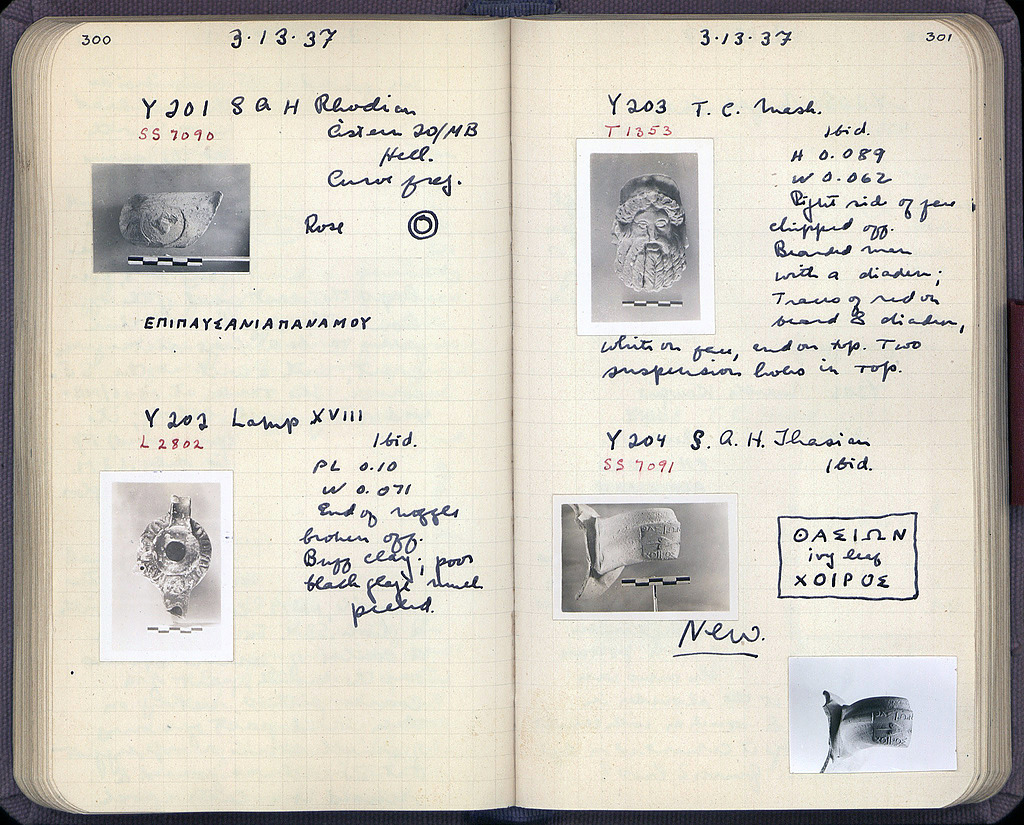 300
3·13·37
Y 201 S A H Rhodian
SS 7090
Cistern 20/MB
Hell.
Curve frg.
Rose
ΕΠΙΠΑΥΣΑΝΙΑΠΑΝΑΜΟΥ
Y 202 Lamp XVIII
L 2802
Ibid.
PL 0.10
W 0.071
End of nozzle
broken off.
Buff clay; poor
black glaze much
peeled.
3·13·37
301
Y 203 T. C. Mask.
T 1353
Ibid.
H 0.089
W 0.062
Right side of face
chipped off.
Bearded man
with a diadem;
Traces of red on
beard & diadem,
white on face, and on top. Two
suspension holes in top.
Y 204 S. A. H. Thasian
SS 7091
Ibid.
ΘΑΣΙΩΝ
ivy leaf
ΧΟΙΡΟΣ
New.